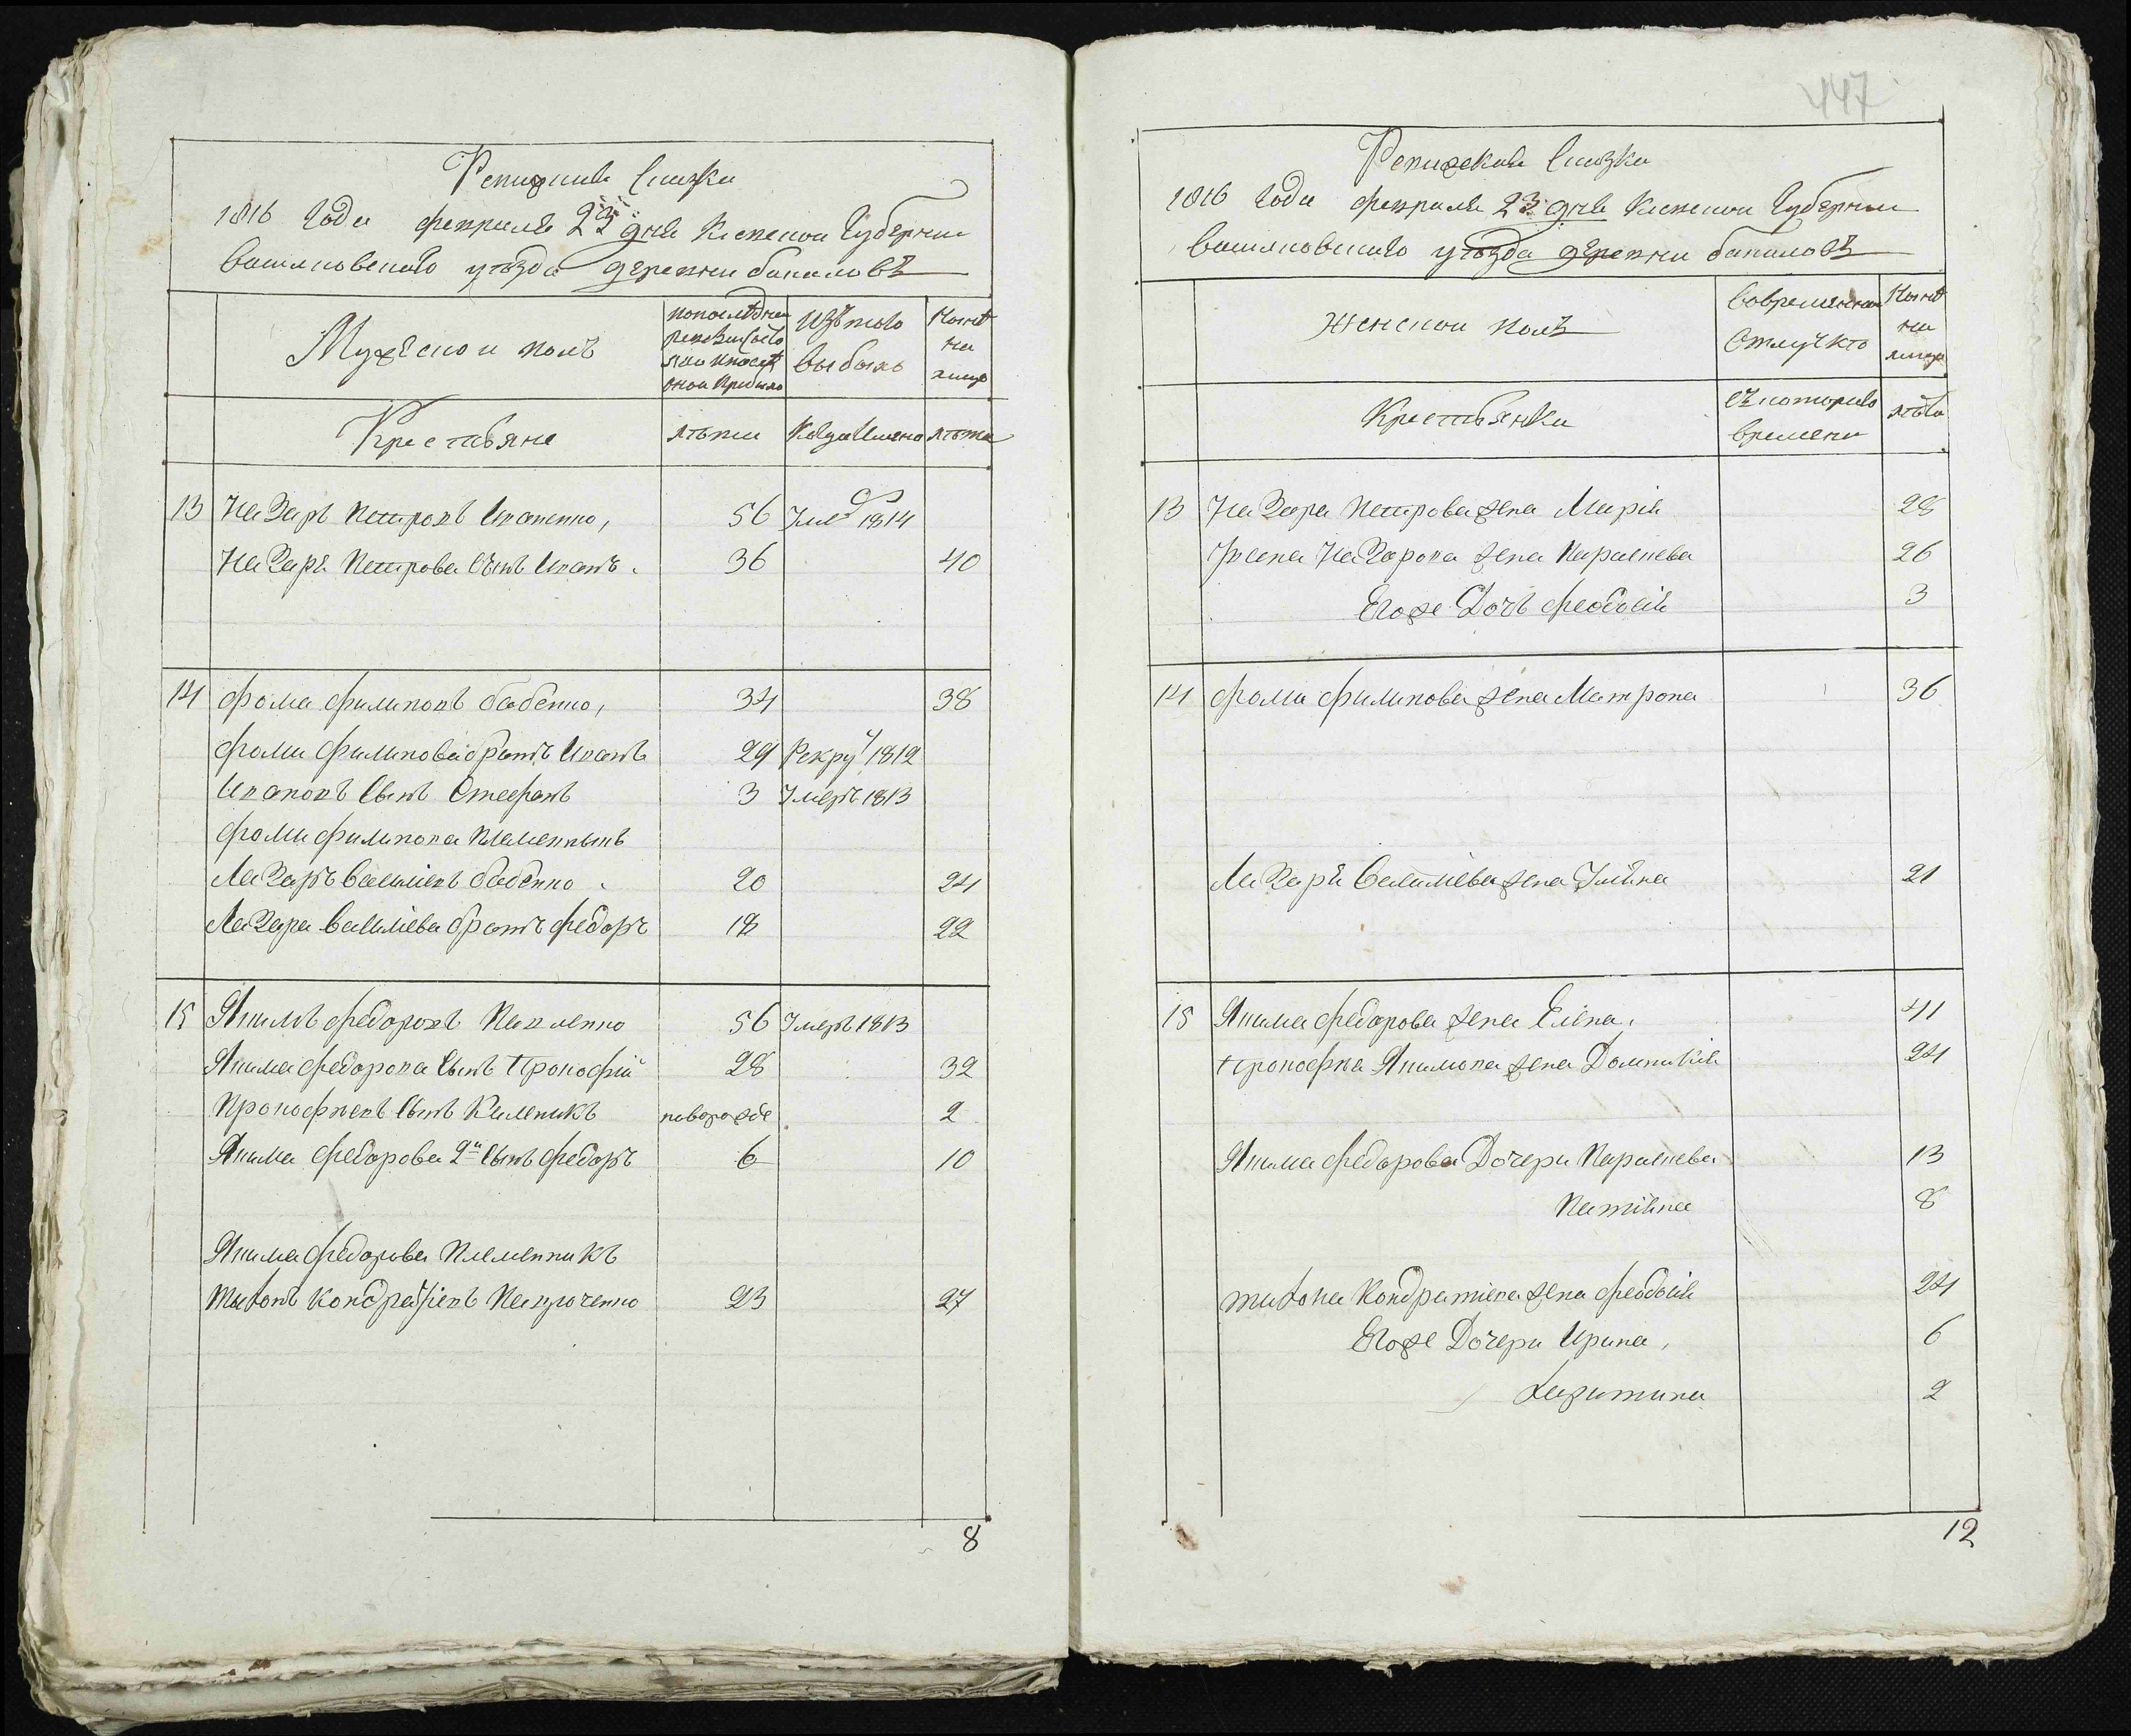 Ревизская Сказка
1816 Года февраля 23 дня Киевской Губернии
Васильковского уѣзда деревни
Мужеской полъ
по последней ревизии состояло и после оной прибыло
Изъ того выбыло
Нынѣ на лицо
Крестьяне
лѣта
Когда Именно
лѣта
13 Назаръ Петровъ 56 Уме 1814
Назара Петрова Сынъ Иванъ. 36 40
14 Фома Филиповъ Бабенко, 34 38
Фомы Филипова братъ Иванъ 29 Рекру 1812
Ивановъ Сынъ Стефанъ 3 Умеръ 1813
Фомы Филипова племенныкъ
Лазаръ Василіевъ Бабенко. 20 24
Лазара Василіева братъ Федоръ 18 22
15 Якимъ Федоровъ 56 Умеръ 1813
Якима Федорова Сынъ Прокофій 28 32
Прокофиевъ Сынъ Каленикъ новорожде 2
Якима Федорова 2й Сынъ Федоръ 6 10
Якима Федорова Племенникъ
Кондратіевъ 23 27
8
447
Ревизская Сказка
1816 Года февраля 23 дня Киевской Губернии
Васильковского уѣзда деревни
Женской полъ
Во временной Отлучкѣ
Нынѣ на лицо
Крестьянки
Съ которого времени
лѣта
13 Назара Петрова жена Марія 28
Ивана Назарова жена Параскева 26
Егоже Дочь Феодосія 3
14 Фомы Филипова жена Матрона 36
Лазара Василіева жена Уліяна 21
15 Якима Федорова жена Елена. 41
Прокофиа Якимова жена Домникія 24
Якима Федорова Дочери Параскева 13
Татіяна 8
Кондратиева жена Феодосія 24
Егоже Дочери Ирина, 6
Харитина 2
12